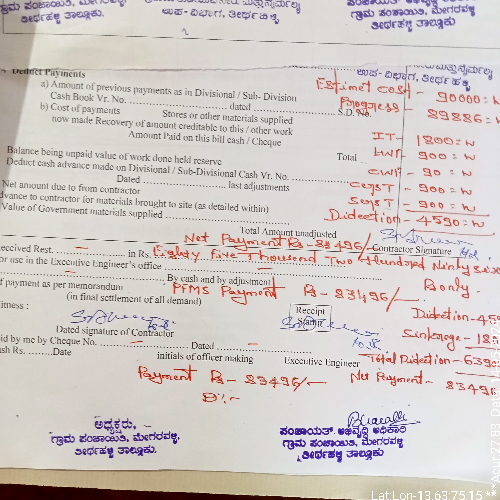 ಗ್ರಾಮ ಪಂಚಾಯಿತಿ, ಮೇಗರವಳ್ಳಿ
ತೀರ್ಥಹಳ್ಳಿ ತಾಲ್ಲೂಕು.
ಉಪ- ವಿಭಾಗ, ತೀರ್ಥಹಳ್ಳಿ
ಗ್ರಾಮ ಪಂಚಾಯಿತಿ, ಮೇಗರವಳ್ಳಿ
ತೀರ್ಥಹಳ್ಳಿ ತಾಲ್ಲೂಕು.
ಉಪ- ವಿಭಾಗ, ತೀರ್ಥಹಳ್ಳಿ
Deduct Payments
a) Amount of previous payments as in Divisional / Sub- Division
Estimet cost - 90000=00
Cash Book Vr. No. dated S.D.No.
Progress - 89886=00
b) Cost of payments Stores or other materials supplied
now made Recovery of amount creditable to this / other work
IT- 1800=00
Amount Paid on this bill cash / Cheque
Balance being unpaid value of work done held reserve Total
900=00
Deduct cash advance made on Divisional / Sub-Divisional Cash Vr. No.
90=00
Dated last adjustments
CGST - 900=00
Net amount due to from contractor
SGST - 900=00
advance to contractor for materials brought to site (as detailed within)
Didection - 4590=00
Value of Government materials supplied
Total Amount unadjusted
Net Payment Rs - 83496/- Contractor Signature
eceived Rest. in Rs. Eighty Five Thousand Two Hundred Ninty
or use in the Executive Engineer's office
Rs only.
By cash and by adjustment
f payment as per memorandum PFMS Payment Rs - 83496/-
(in final settlement of all demand)
Receipt Stamp
Didection - 45
itness :
Sinkenage - 18
Dated signature of Contractor
id by me by Cheque No. Dated
Total Didection - 639
sh Rs. Date initials of officer making Executive Engineer
Payment Rs - 83496/- Net Payment - 83496
ಅಧ್ಯಕ್ಷರು,
ಗ್ರಾಮ ಪಂಚಾಯಿತಿ, ಮೇಗರವಳ್ಳಿ
ತೀರ್ಥಹಳ್ಳಿ ತಾಲ್ಲೂಕು.
ಪಂಚಾಯತ್ ಅಭಿವೃದ್ಧಿ ಅಧಿಕಾರಿ
ಗ್ರಾಮ ಪಂಚಾಯಿತಿ, ಮೇಗರವಳ್ಳಿ
ತೀರ್ಥಹಳ್ಳಿ ತಾಲ್ಲೂಕು.
Lat Lon- 13.63:75.15